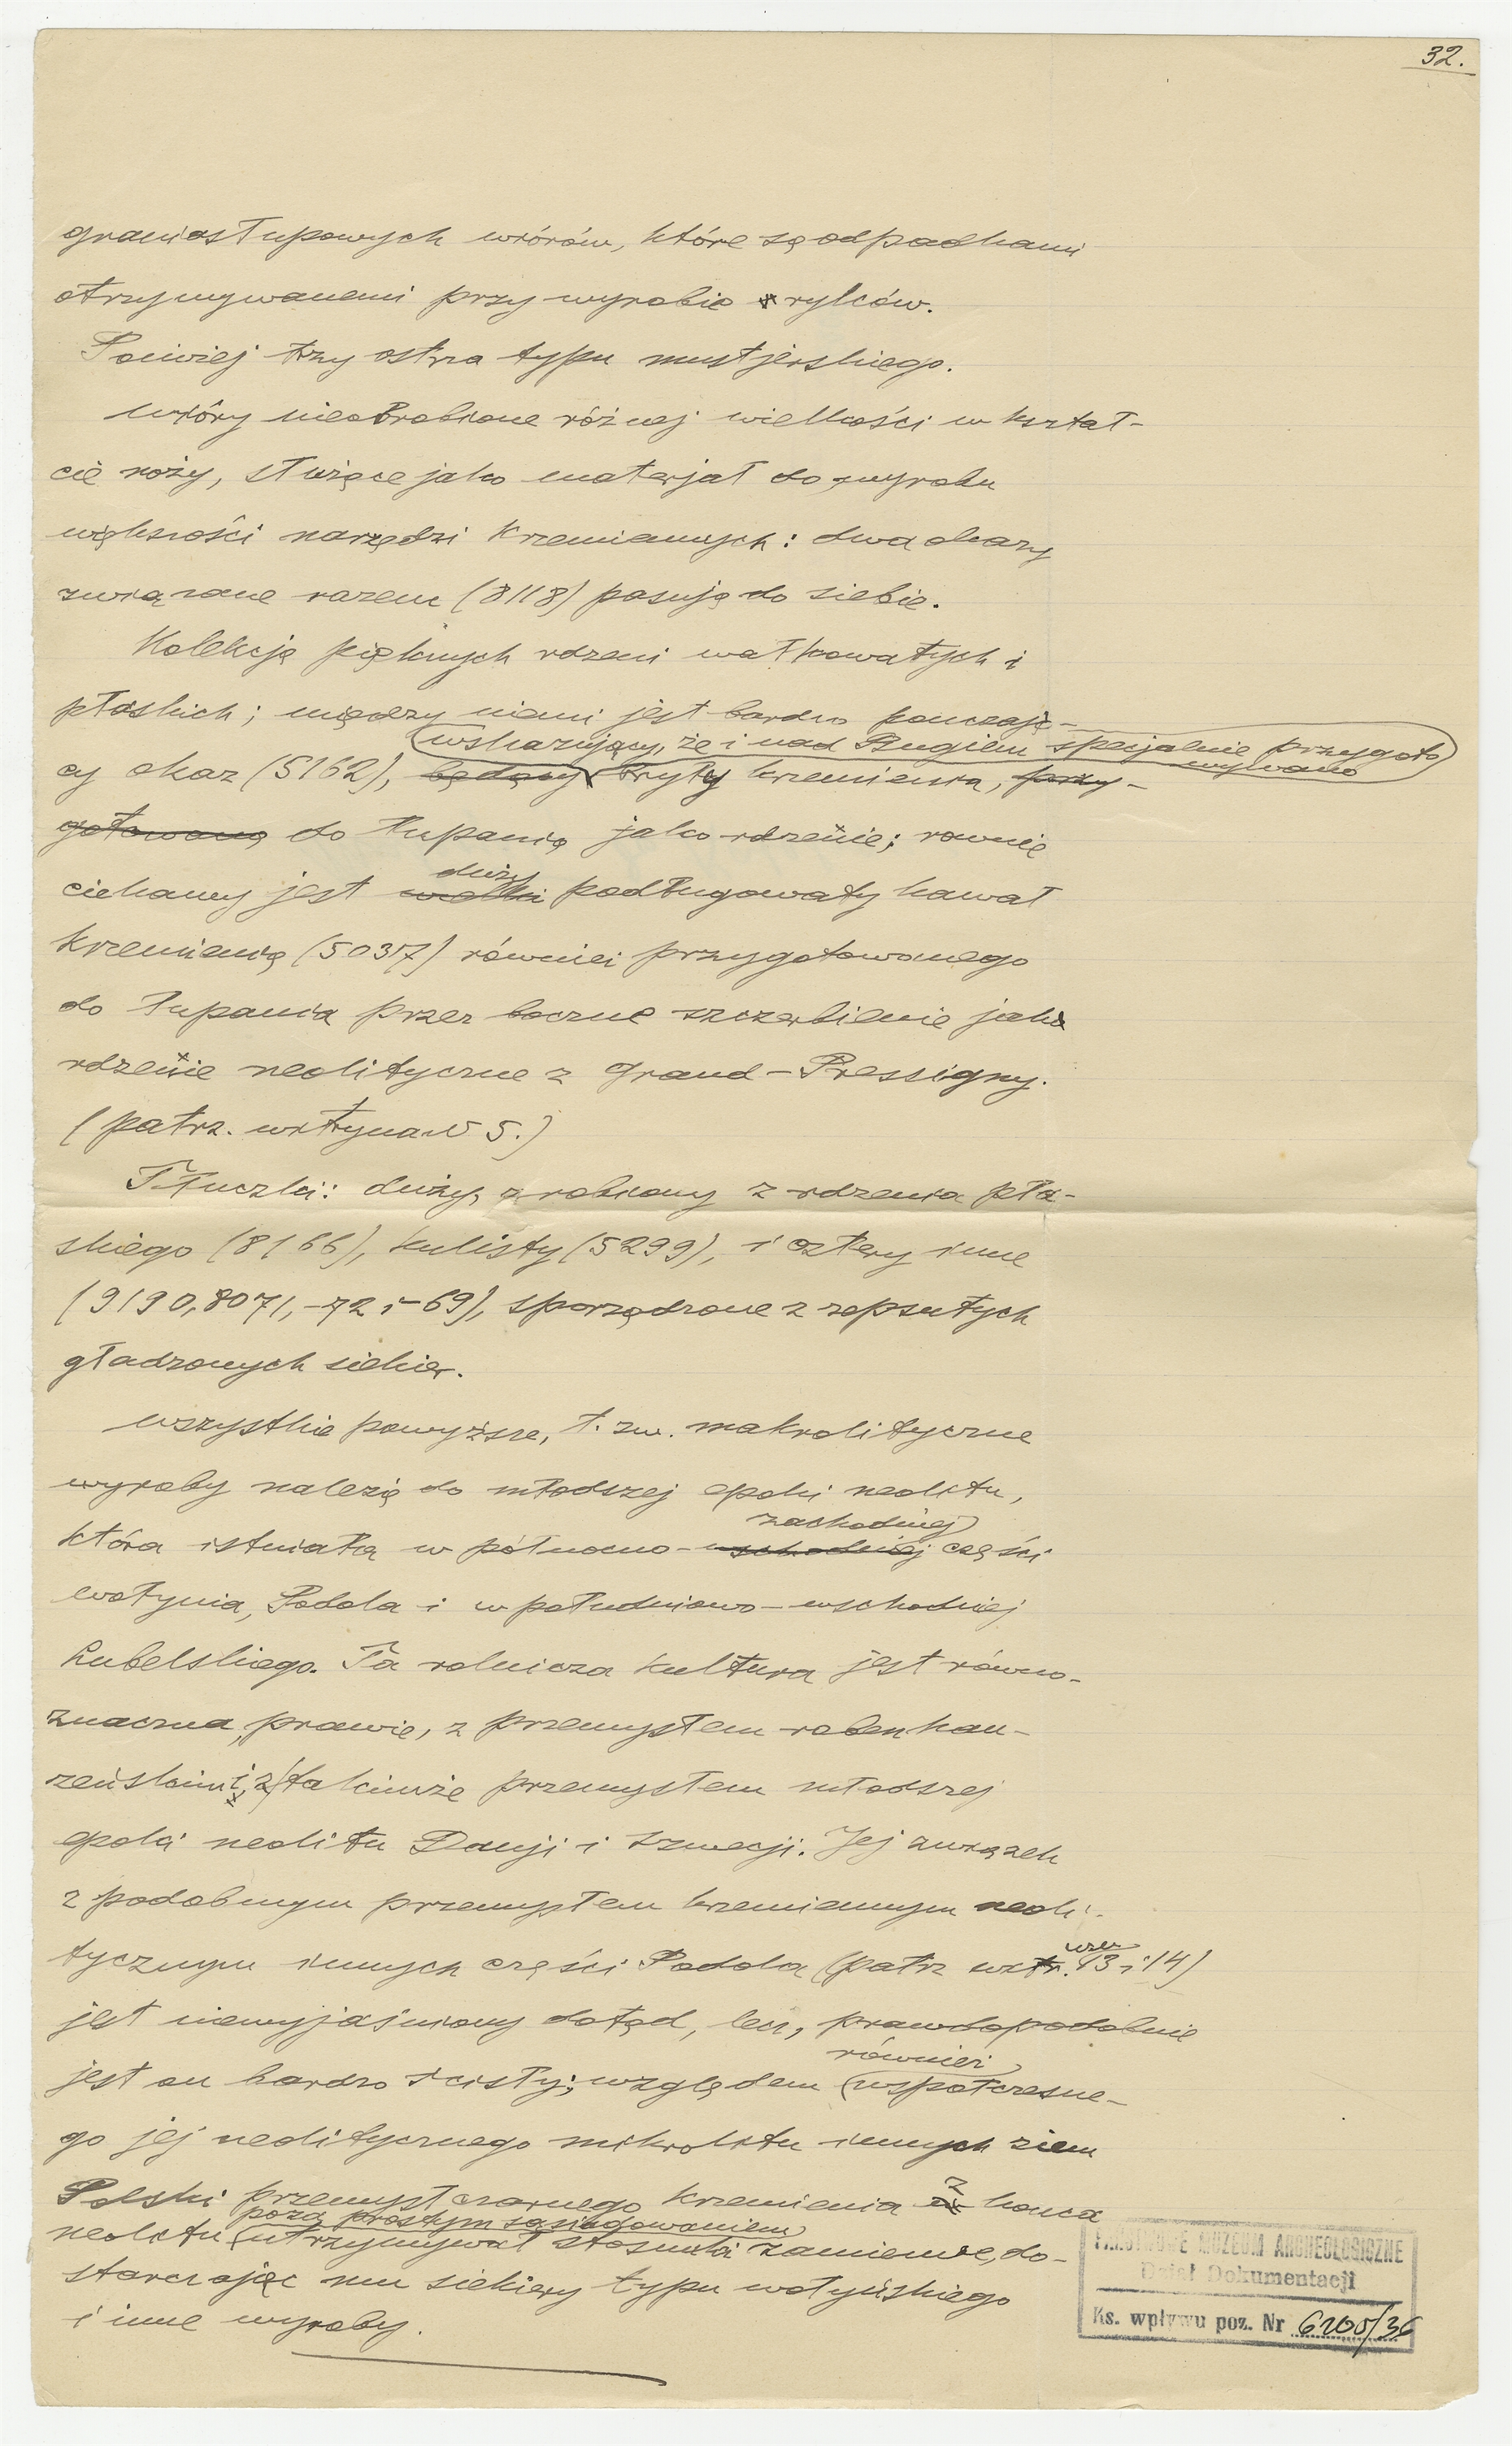 32.
graniastupowych wiórów, które są odpadkami
otrzymywanemi przy wyrobie rylców.
Poniżej trzy ostrza typu mustjerskiego.
Wióry nieobrobione różnej wielkości w kształ-
cie noży, służące jako materjał do wyrobu
większości narzędzi krzemiennych: dwa okazy
związane razem (8118) pasują do siebie.
Kolekcja pięknych rdzeni wałkowatych i
płaskich; między niemi jest bardzo pouczają-
wskazujący, że i nad Bugiem specjalnie przygoto
wywano
cy okaz (5162), będący bryły krzemienia, przy-
gotowaną do łupania jako rdzenie; rownie
duży
ciekawy jest wielki podługowaty kawał
krzemienia (5037) również przygotowanego
do łupania przez boczne szczerbienie jako
rdzenie neolityczne z Grand-Pressigny.
(patrz. witryna N 5.)
Tłuczki: duży, zrobiony z rdzenia pła-
skiego (8166), kulisty (5299), i cztery inne
(9190, 8071, -72 i -69), sporządzone z zepsutych
gładzonych siekier.
Wszystkie powyższe, t. zw. makrolityczne
wyroby należą do młodszej epoki neolitu,
zachodniej
która istniała w północno-wschodniej części
Wołynia, Podola i w południowo-wschodniej
Lubelskiego. Ta rolnicza kultura jest równo-
znaczna, prawie, z przemysłem robenhau-
zeńskim i z takimże przemysłem młodszej
epoki neolitu Danji i Szwecji. Jej związek
z podobnym przemysłem krzemiennym neoli-
tycznym innych części Podola (patrz witr. 13 i 14)
jest niewyjaśniony dotąd, lecz, prawdopodobnie
również
jest on bardzo ścisły; względem współczesne-
go jej neolitycznego mikrolitu innych ziem
Polski przemysł czarnego krzemienia z końca
poza prostym sąsiadowaniem
neolitu utrzymywał stosunki zamienne, do-
starczając mu siekiery typu wołyńskiego
i inne wyroby.
PAŃSTWOWE MUZEUM ARCHEOLOGICZNE
Dział Dokumentacji
Ks. wpływu poz. Nr 6200/36